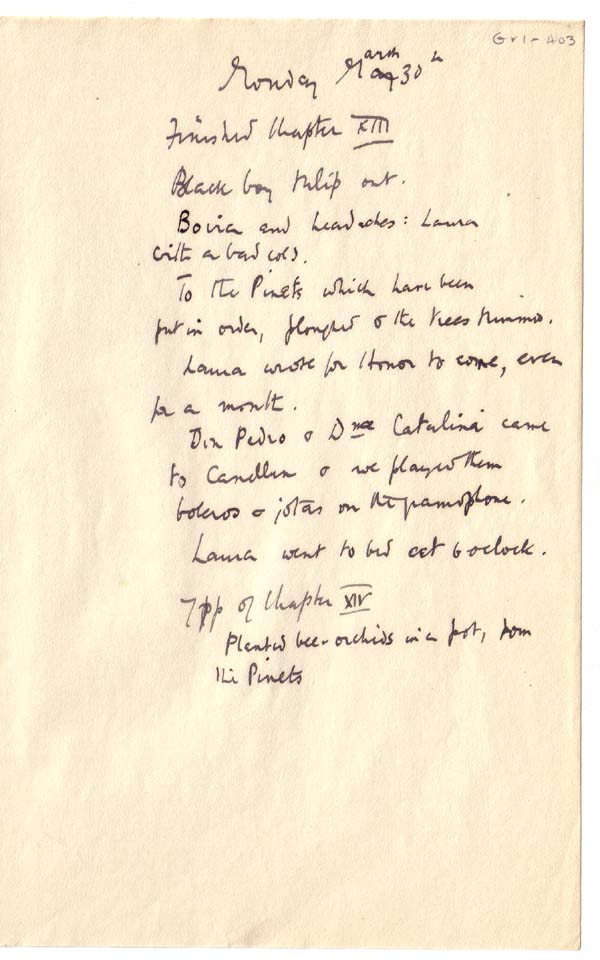 Gr1-403
Monday March 30th
Finished Chapter XIII
Black boy tulip out.
Bovia and headaches: Laura
with a bad cold.
To the Pinets which have been
put in order, ploughed & the trees trimmed.
Laura wrote for Honor to come, even
for a month.
Don Pedro & Dna Catalina came
to Canellun & we played them
boleros & jotas on the gramophone.
Laura went to bed at 6 oclock.
7pp of Chapter XIV
Planted bee-orchids in a pot, from
the Pinets